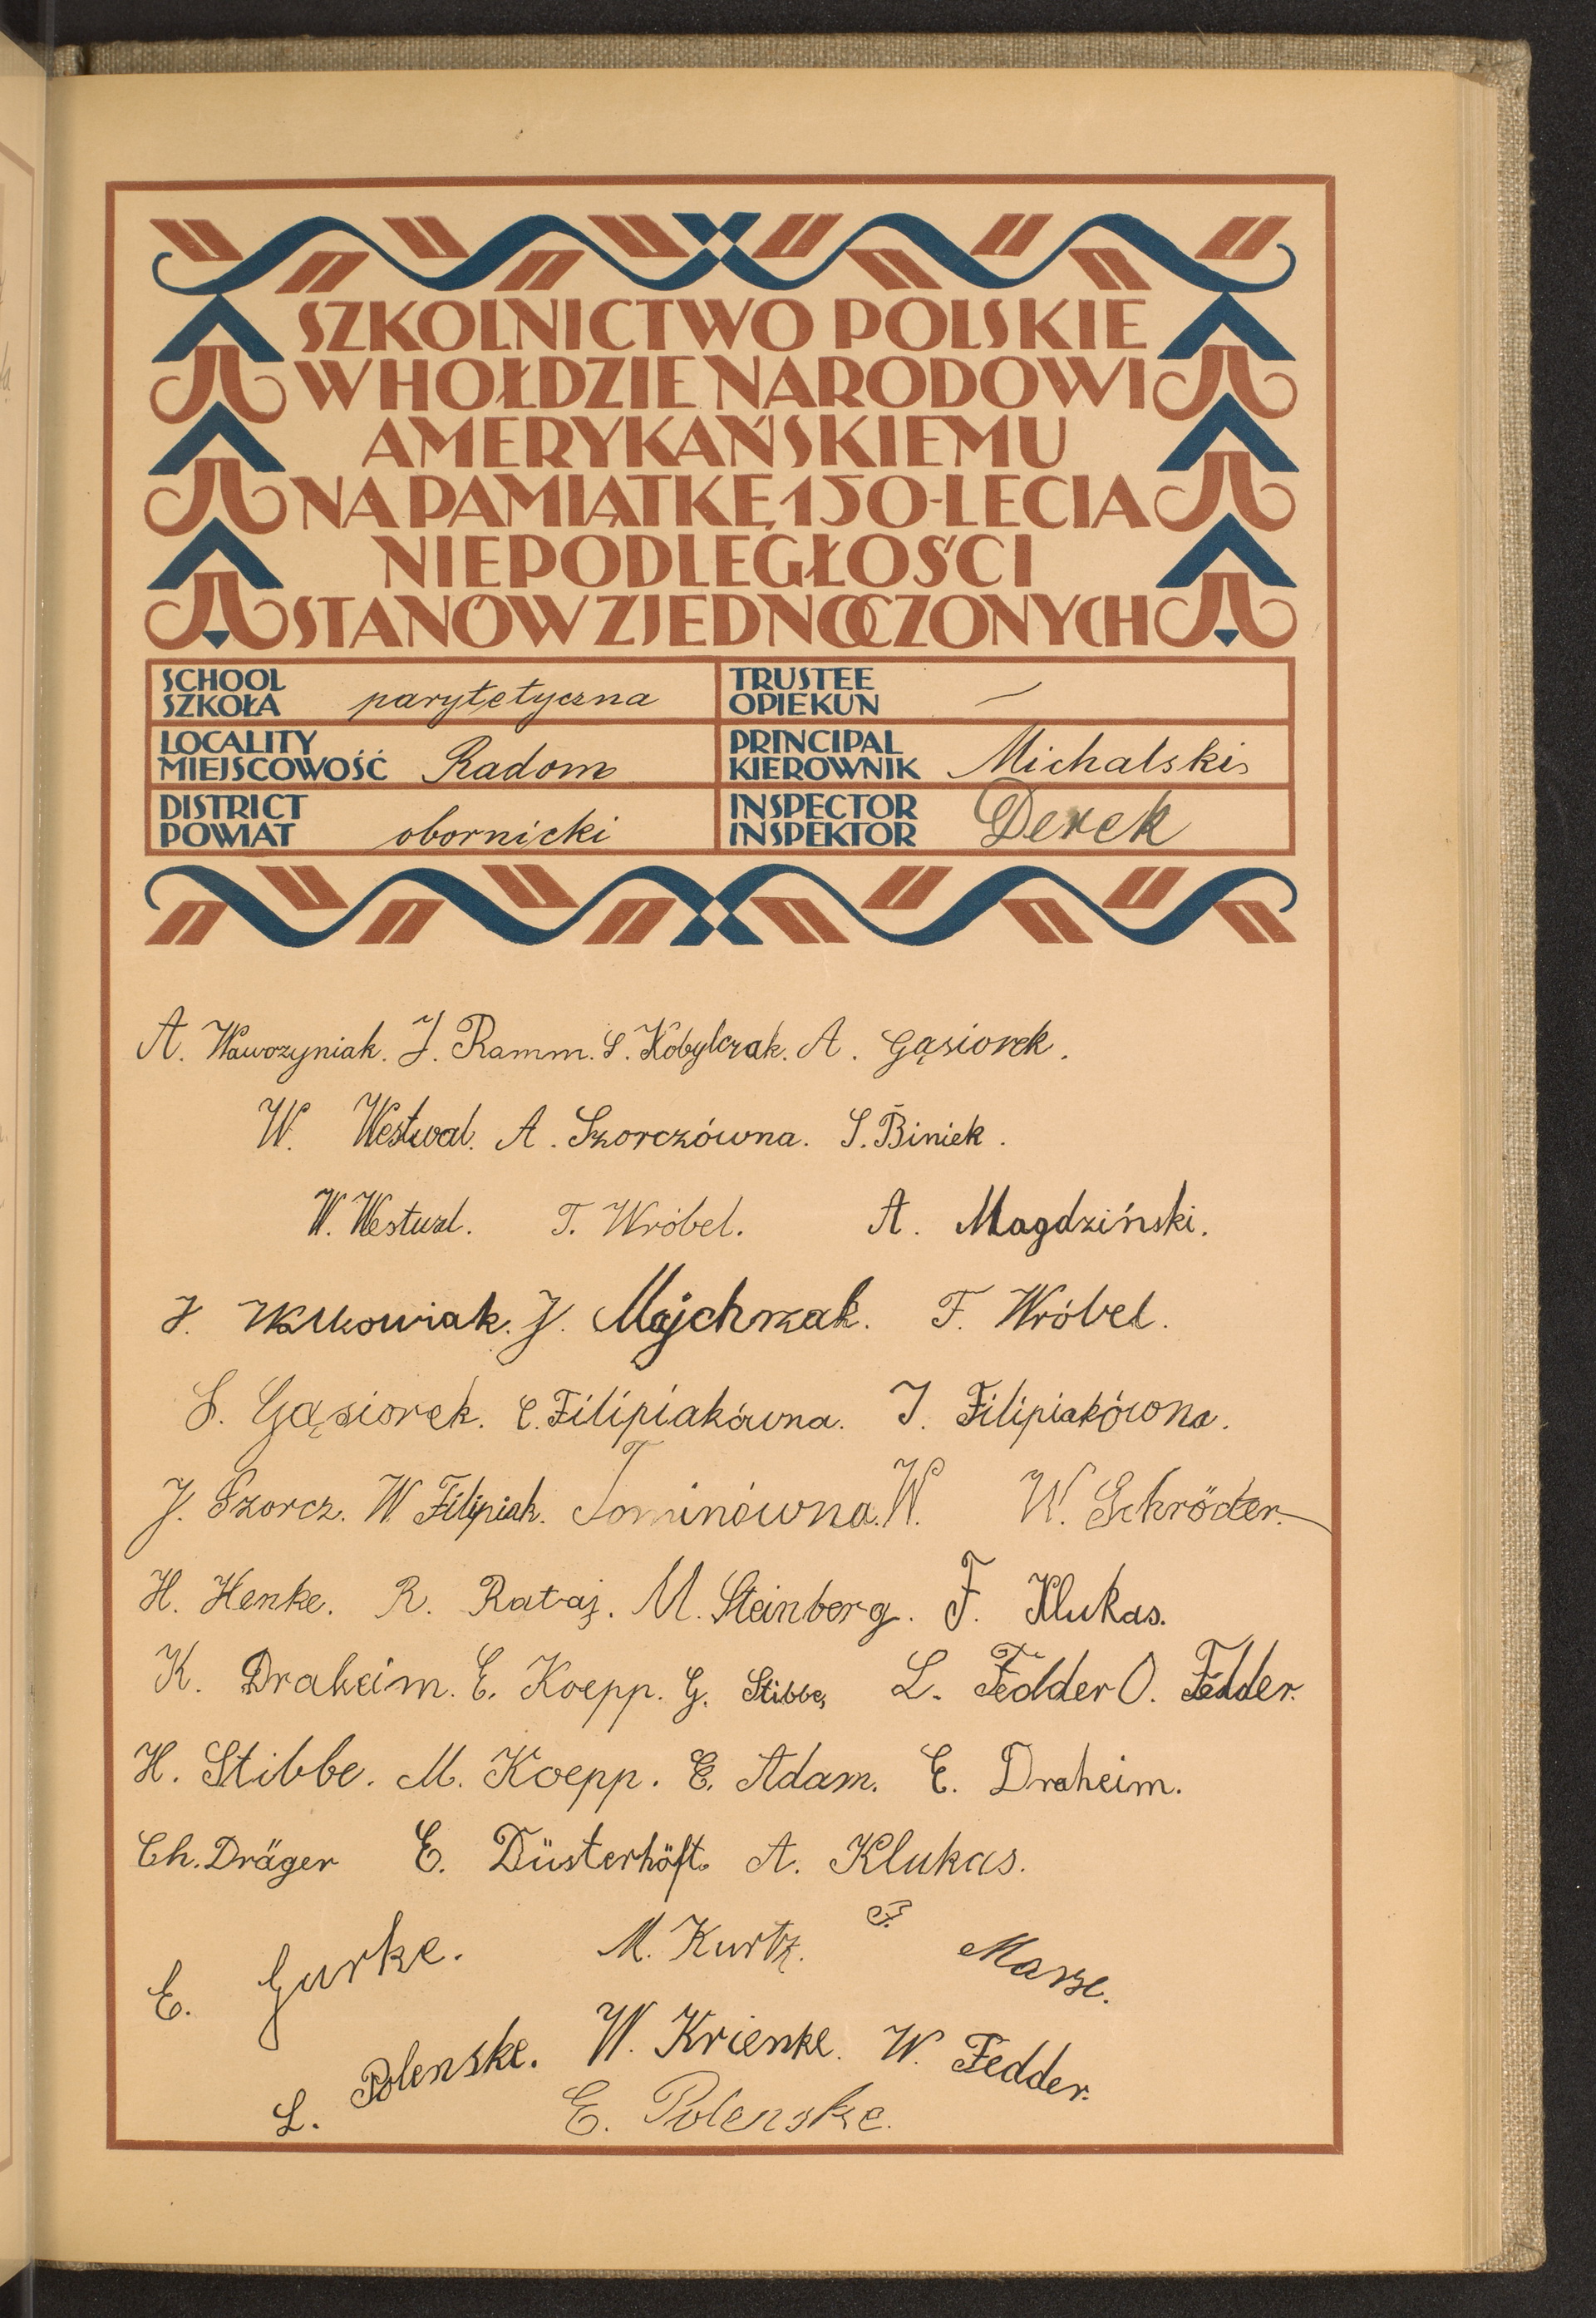 SZKOLNICTWO POLSKIE
W HOŁDZIE NARODOWI
AMERYKAŃSKIEMU
NA PAMIĄTKĘ 150-LECIA
NIEPODLEGŁOŚCI
STANÓW ZJEDNOCZONYCH
SCHOOL SZKOŁA parytetyczna
TRUSTEE OPIEKUN —
LOCALITY MIEJSCOWOŚĆ Radom
PRINCIPAL KIEROWNIK Michalski
DISTRICT POWIAT obornicki
INSPECTOR INSPEKTOR Derek
A. Wawrzyniak. J. Ramm. S. Kobylczak. A. Gąsiorek.
W. Westwal. A. Szorczówna. S. Biniek.
W. Westwal. T. Wróbel. A. Magdziński.
J. Walkowiak. J. Majchrzak. F. Wróbel.
S. Gąsiorek. C. Filipiakówna. J. Filipiakówna.
J. Szorcz. W Filipiak. Tominówna. W. W. Schröder.
H. Henke. R. Rataj. M. Steinberg. F. Klukas.
K. Draheim. E. Koepp. G. Stibbe, L. Fedder O. Fedder.
H. Stibbe. M. Koepp. E. Adam. E. Draheim.
Ch. Dräger E. Düsterhöft. A. Klukas.
E. Gurke. M. Kurtz. F. Marze.
L. Polenske. W. Krienke. W. Fedder.
E. Polenske.